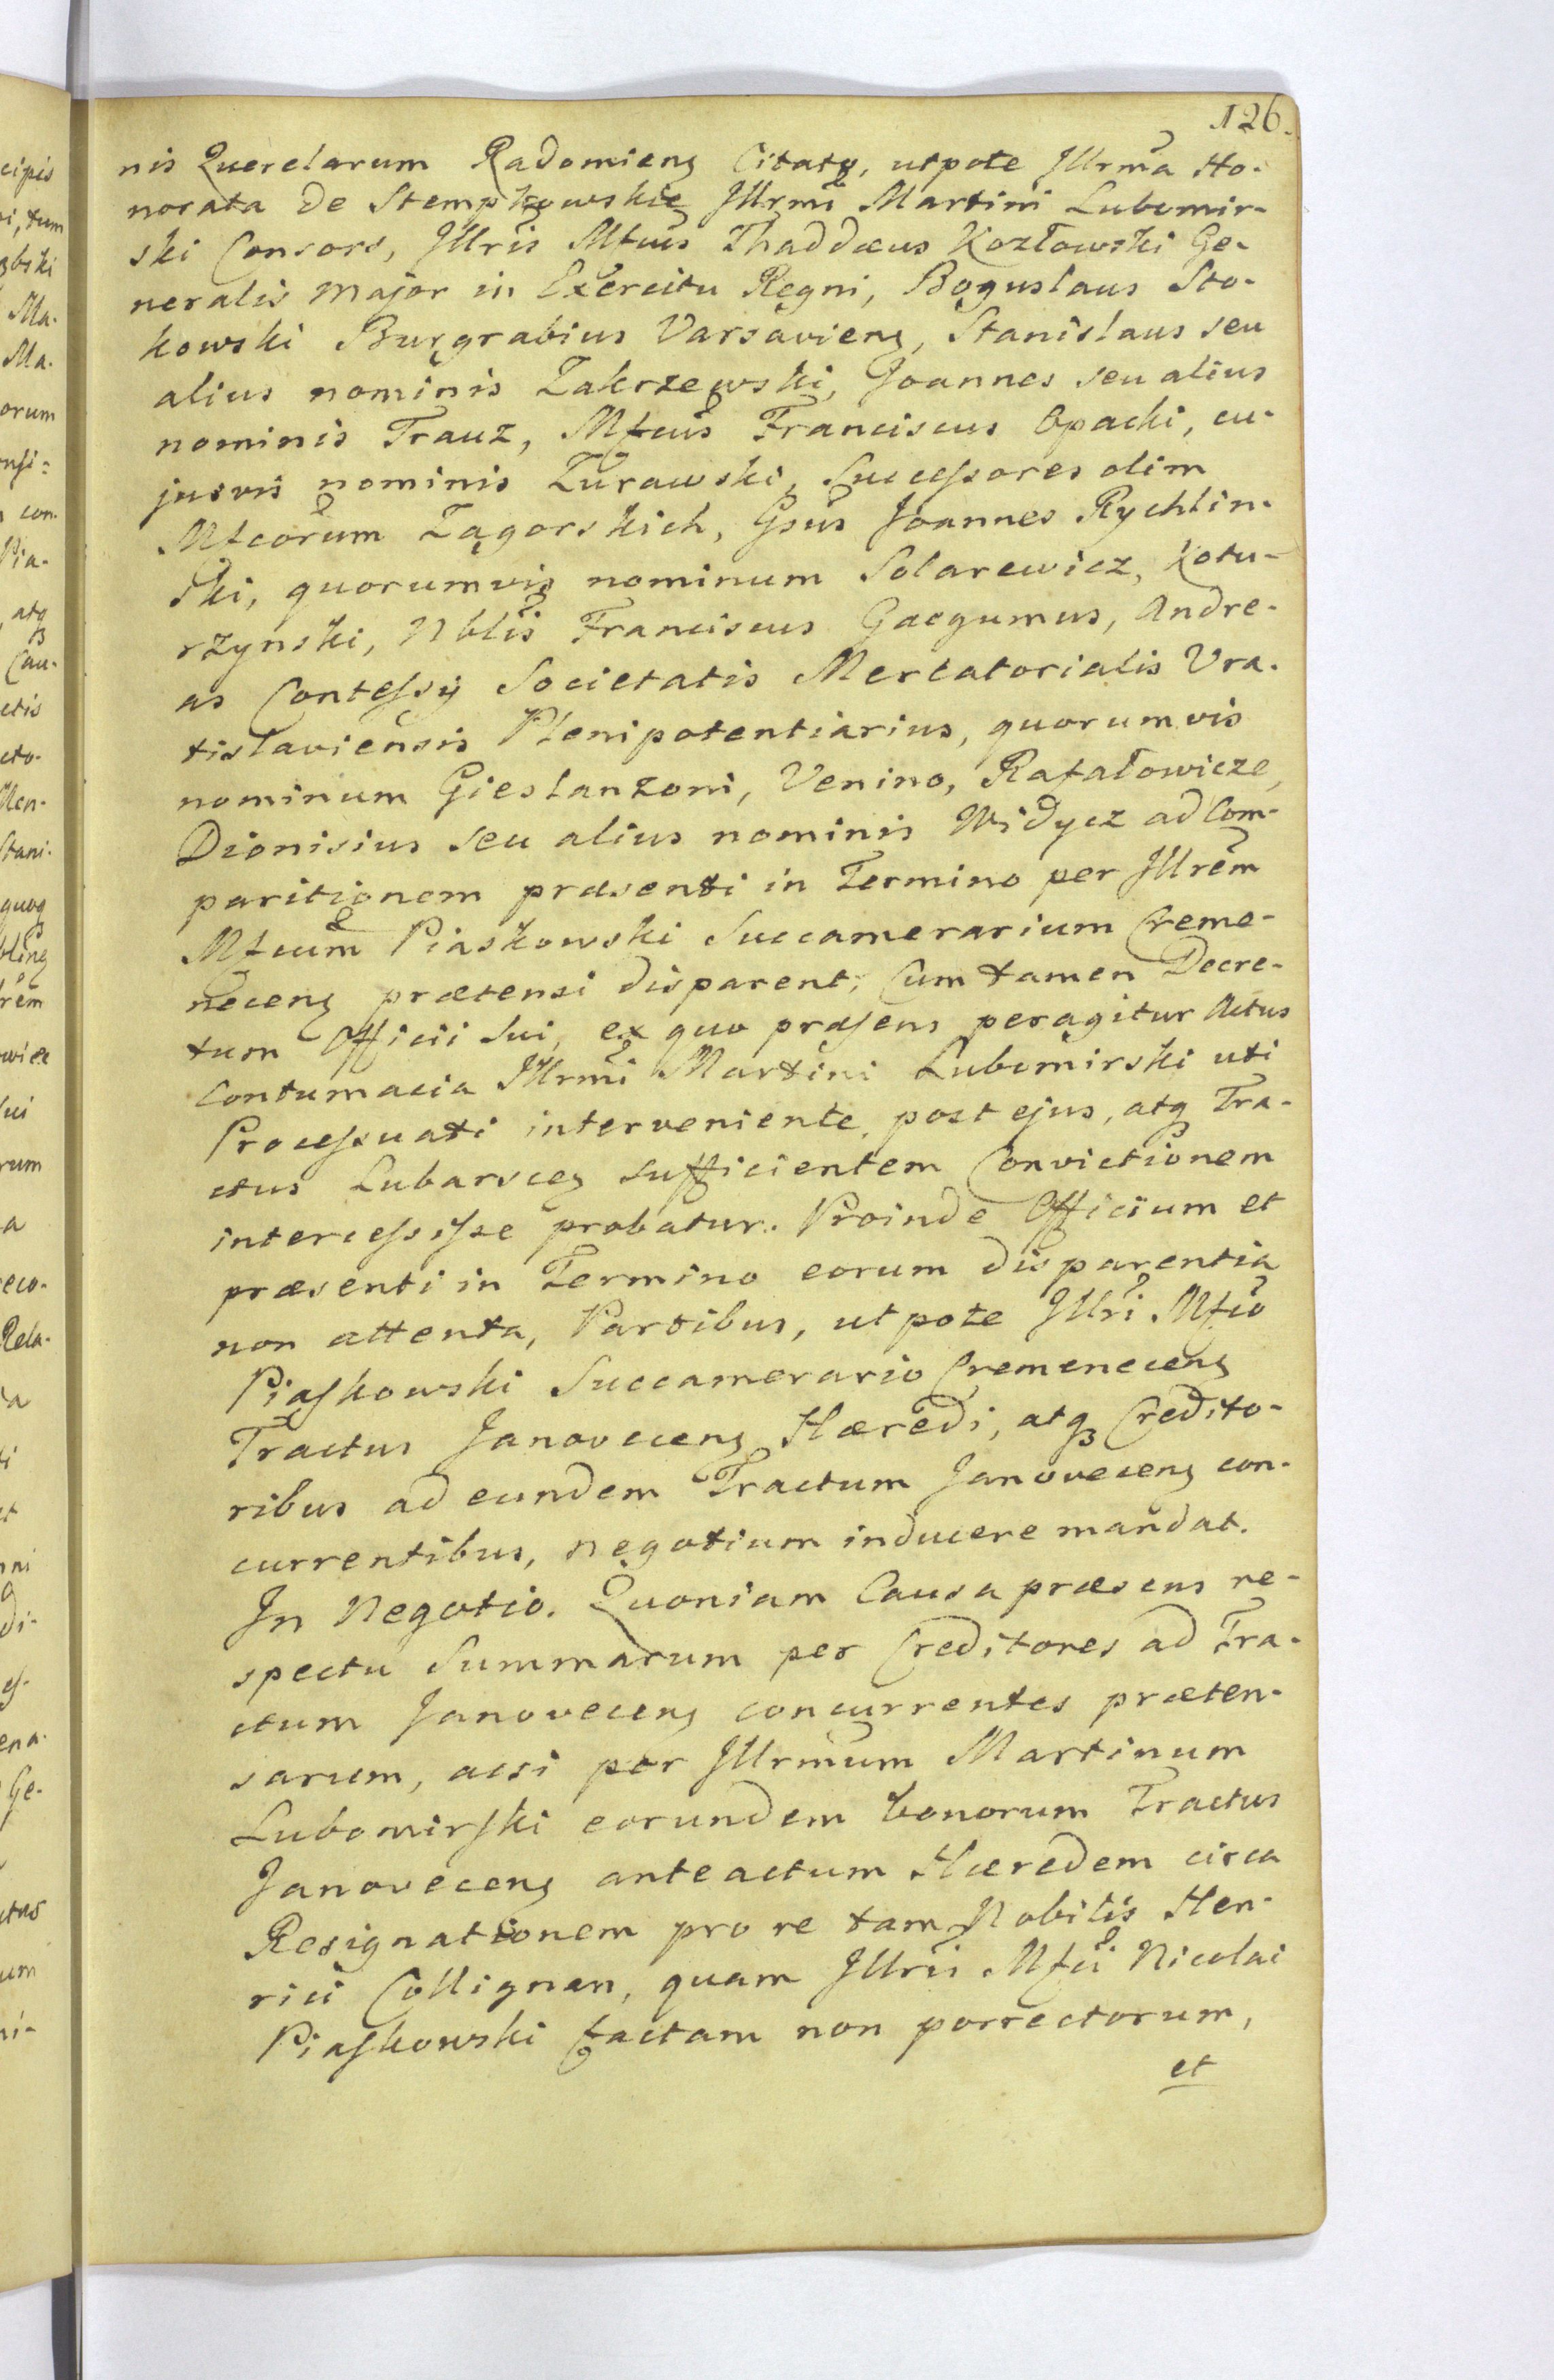 126.
nis Querelarum Radomieng Citatq, utpote Jllrma Ho-
norata de Stempkowskie Jllrmi Martini Lubomir-
ski Consors, Jllris Mfcus Thaddæus Kozłowski Ge-
neralis Major in Exercitu Regni, Boguslaus Sto-
kowski Burgrabius Varsavieng, Stanislaus seu
alius nominis Zakrzewski, Joannes seu alius
nominis Trauz, Mfcus Franciscus Opacki, cu-
jusvis nominis Zurawski, Successores olim
Mfcorum Zagorskich, Gsus Joannes Rychlin-
ski, quorumvis nominum Solarewicz, Kotu-
rzynski, Nblis Franciscus Gaegumus, Andre-
as Contessy Societatis Mercatorialis Vra-
tislaviensis Plenipotentiarius, quorumvis
nominum Gieslanzoni, Venino, Rafałowicze,
Dionisius seu alius nominis Widycz ad Com-
paritionem præsenti in Termino per Jllrem
Mfcum Piaskowski Succamerarium Creme-
neceng prætensi disparent; Cum tamen Decre-
tum Officii sui, ex quo præsens peragitur Actus
Contumacia Jllrmi Martini Lubomirski uti
Processuati interveniente, post ejus, atq Tra-
ctus Lubarsceg sufficientem Convictionem
intercessisse probatur. Proinde Officium et
præsenti in Termino eorum disparentia
non attenta, Partibus, utpote Jllri Mfco
Piaskowski Succamerario Cremeneceng
Tractus Janoveceng Hæredi, atq Credito-
ribus ad eundem Tractum Janoveceng con-
currentibus, negotium inducere mandat.
In Negotio. Quoniam Causa præsens re-
spectu Summarum per Creditores ad Tra-
ctum Janoveceng concurrentes præten-
sarum, acsi per Jllrmum Martinum
Lubomirski eorundem bonorum Tractus
Janoveceng anteactum Hæredem circa
Resignationem pro re tam Nobilis Hen-
rici Collignan, quam Jllris Mfci Nicolai
Piaskowski factam non porrectorum,
et